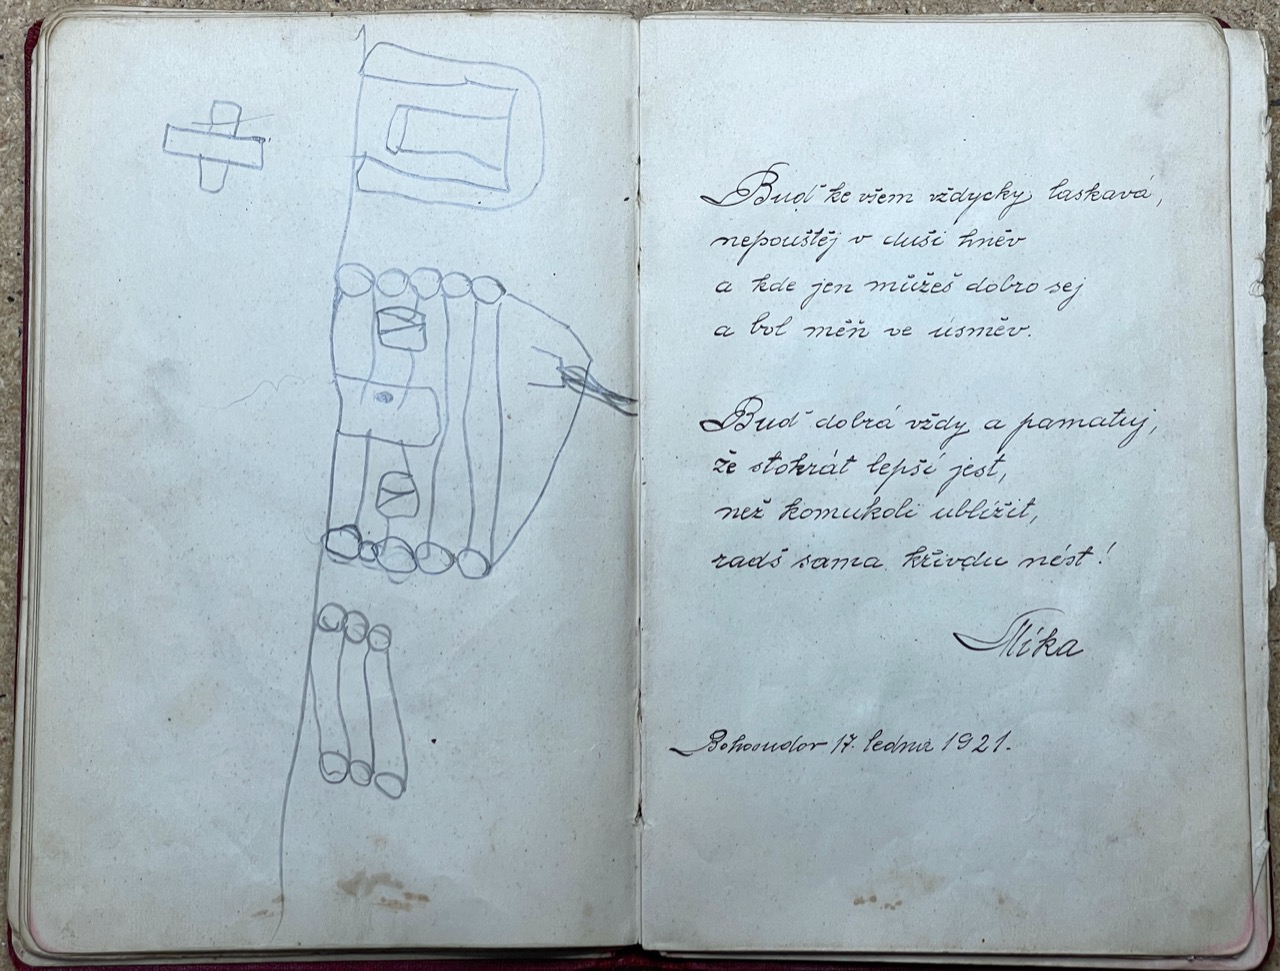 Buď ke všem vždycky laskavá,
nepouštěj v duši hněv
a kde jen můžeš dobro sej
a bol měň ve úsměv.
Buď dobrá vždy a pamatuj,
že stokrát lepší jest,
než komukoli ublížit,
radš sama křivdu nést!
Míka
17. ledna 1921.